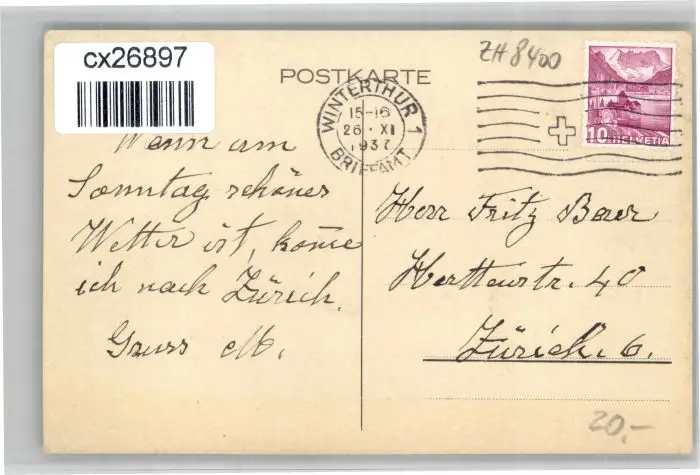 cx26897
POSTKARTE
ZH 8400
WINTERTHUR 1
15-16
26 · XI
1937
BRIEFAMT
10 HELVETIA
Wenn am
Sonntag schönes
Wetter ist, kome
ich nach Zürich.
Gruss M.
Herr Fritz
40
Zürich 6.
20.-